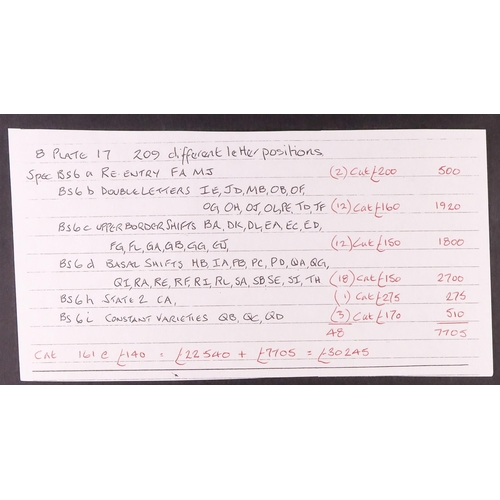 8 PLATE 17 209 different letter positions
Spec BS6 a RE-ENTRY FA MJ (2) Cat £200 500
BS6 b DOUBLE LETTERS IE, JD, MB, OB, OF,
OG OH, OJ, OL, PE, TD, TF (12) Cat £160 1920
BS6 c UPPER BORDER SHIFTS BA, DK, DL, EA, EC, ED,
FG, FL, GA, GB, GG, GJ, (12) Cat £150 1800
BS6 d BASAL SHIFTS HB, IA, PB, PC, PD, QA, QG,
QI, RA, RE, RF, RI, RL, SA, SB SE, SI, TH (18) Cat £150 2700
BS6 h STATE 2 CA, (1) Cat £275 275
BS6 i CONSTANT VARIETIES QB, QC, QD (3) Cat £170 510
48 7705
CAT 161 @ £140 = £22540 + £7705 = £30245